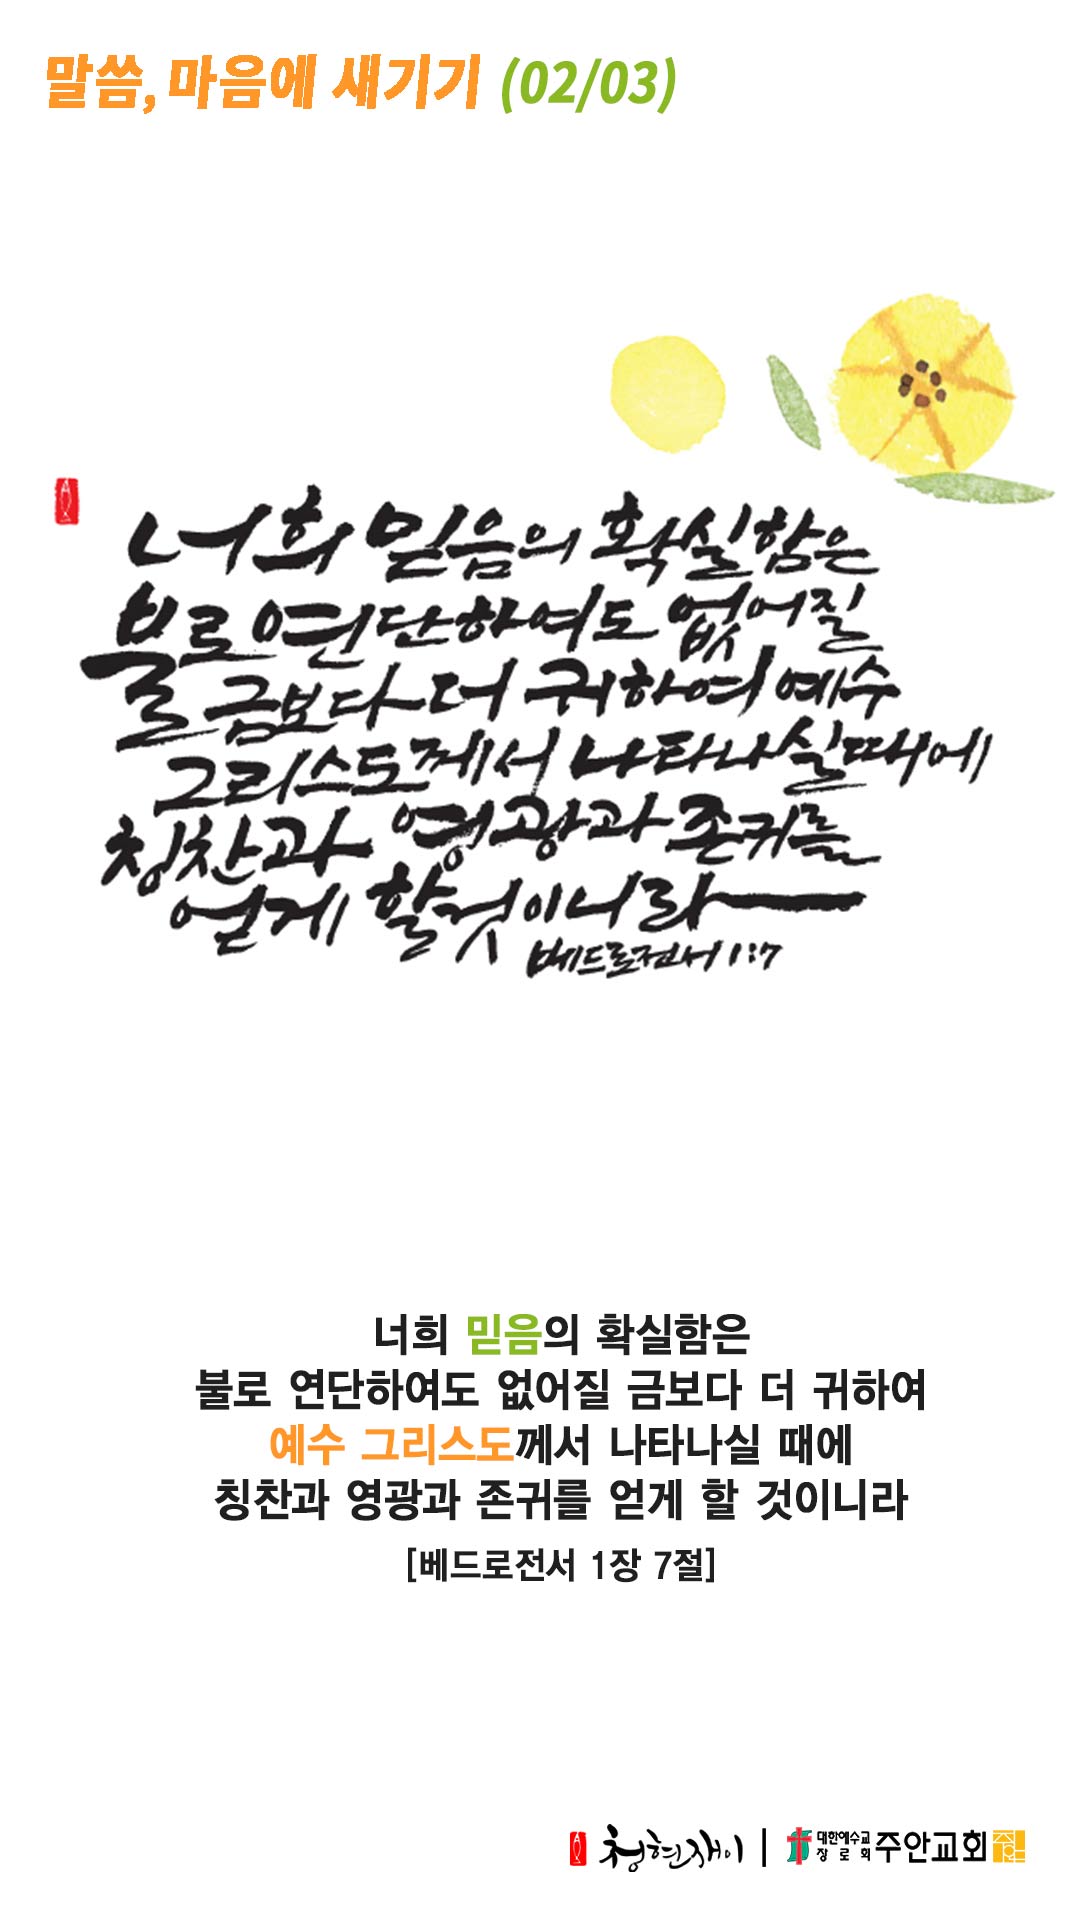 말씀, 마음에 새기기 (02/03)
너희 믿음의 확실함은
불로 연단하여도 없어질
금보다 더 귀하여 예수
그리스도께서 나타나실 때에
칭찬과 영광과 존귀를
얻게 할 것이니라
베드로전서 1:7
너희 믿음의 확실함은
불로 연단하여도 없어질 금보다 더 귀하여
예수 그리스도께서 나타나실 때에
칭찬과 영광과 존귀를 얻게 할 것이니라
[베드로전서 1장 7절]
청현재이 | 대한예수교 장로회 주안교회